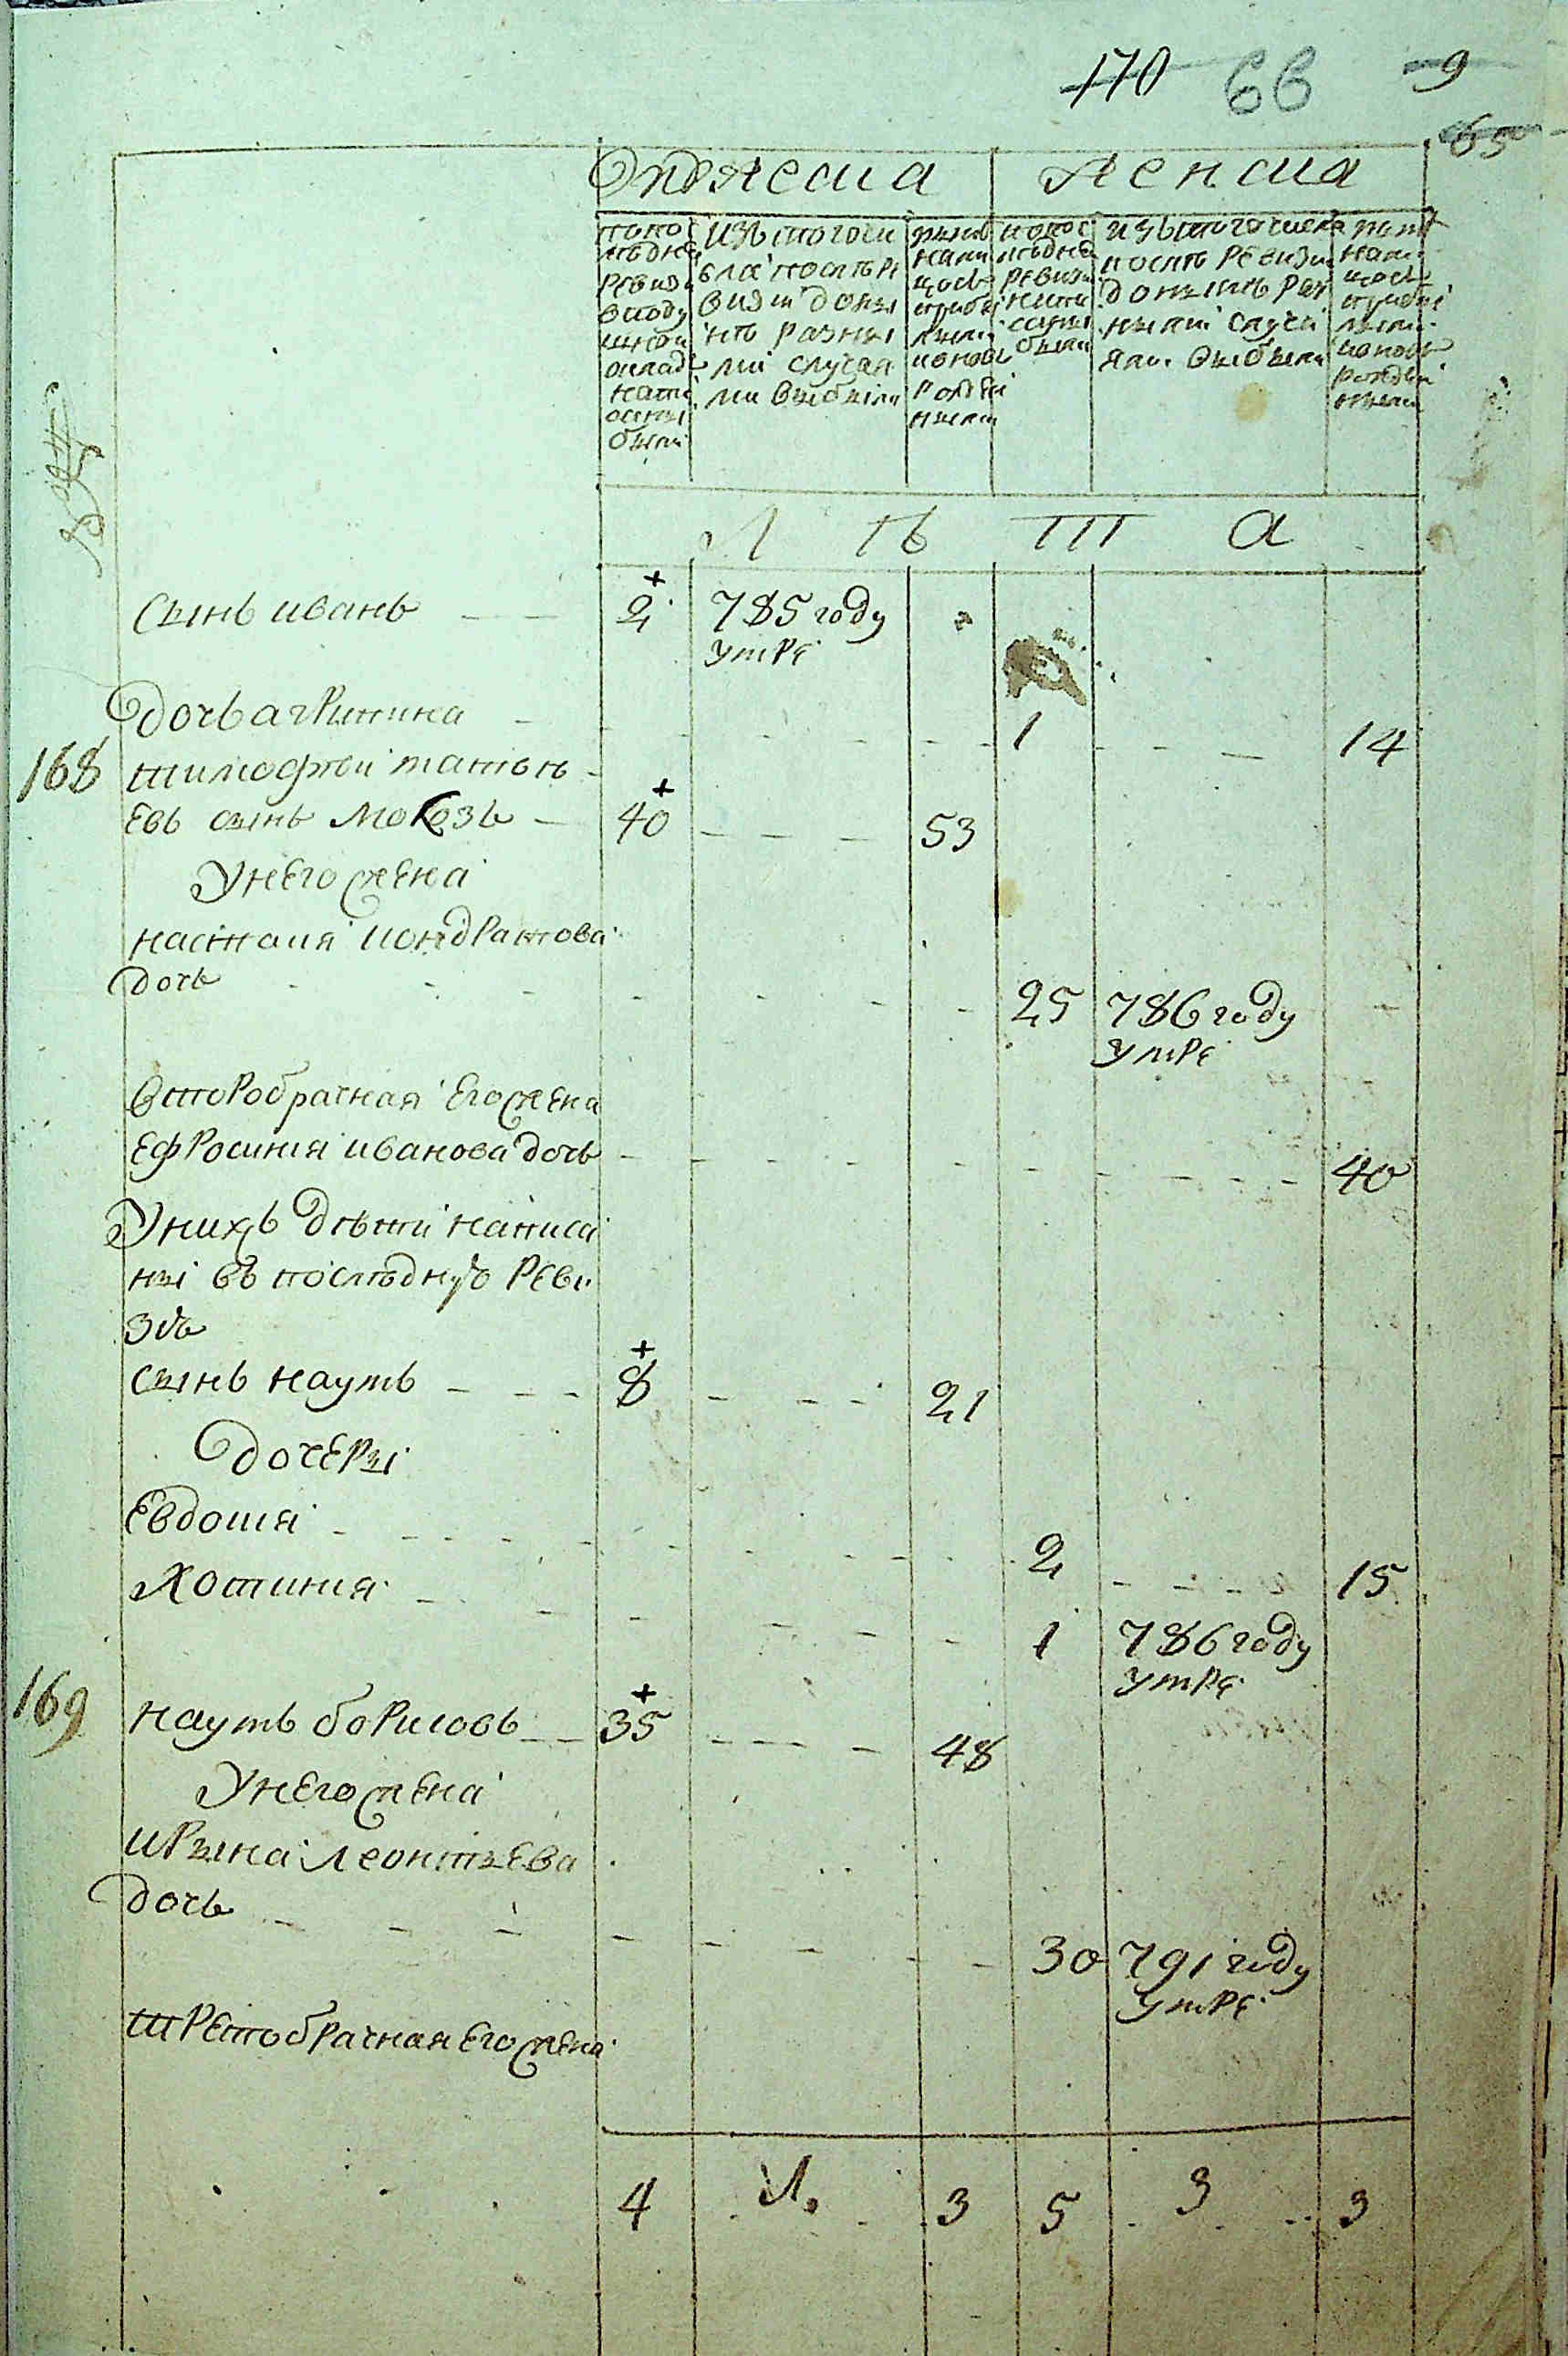 170 66 9
65
Мужеска женска
попо
слѣдне
ревизи
вподу
шной
оклад
напи
саны
были
изъ того чи
сла послѣ ре
визи до ны
нѣ разны
ми случая
ми выбыли
нынѣ
нали
цосъ
прибы
лыми
ионовъ
рожде
ными
попос
лѣдне
ревизи
напи
саны
были
изъ того числа
послѣ ревизи
до нынѣ раз
ными случа
ями выбыли
нынѣ
нали
цосъ
прибы
лыми
ионовъ
рожден
ными
Л ѣ т а
сынъ иванъ — — 2 785 году
умре
дочь агрипина — 1 — — — 14
168 тимофѣй
евъ сынъ — 40 — — — 53
Унего жена
настасия кондратова
дочь 25 786 году
умре
второбрачная его жена
ефросиния иванова дочь 40
Унихъ дѣти написа
ны въ послѣдную реви
зию
сынъ наумъ — — — 8 — — — 21
дочери
Евдокия 2 — — — 15
Хотиния 1 786 году
умре
169 наумъ борисовъ — — 35 — — — 48
Унего жена
ирына леонтьева
дочь 30 791 году
умре
третобрачная его жена
4 1. 3 5 3 3